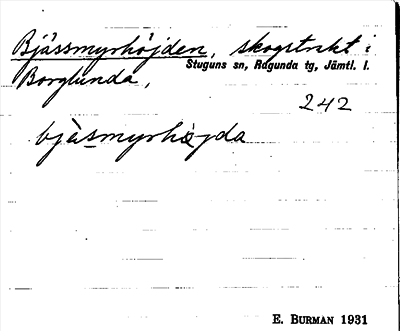 Bjässmyrhöjden, skogstrakt i
Stuguns sn, Ragunda tg, Jämtl. l.
Borglunda,
242
bjäsmyrhöjda
E. BURMAN 1931